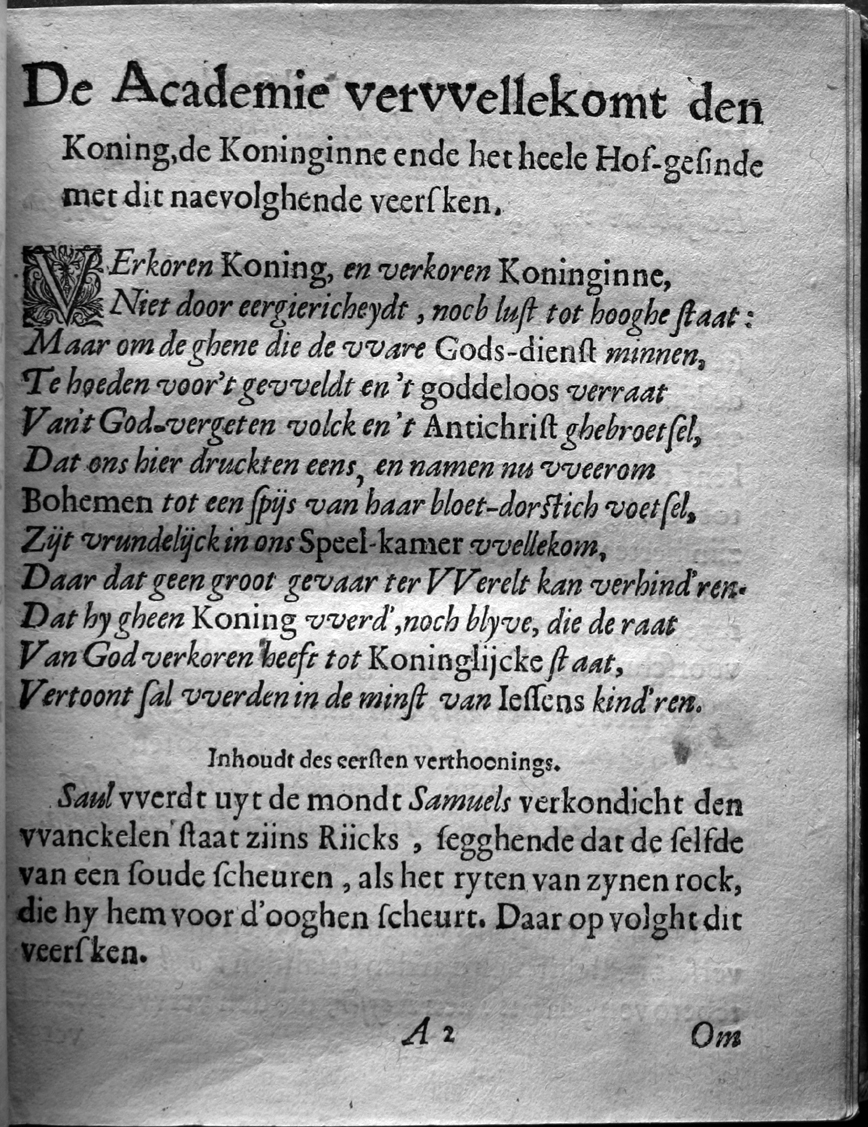 De Academie vervvellekomt den
Koning, de Koninginne ende het heele Hof-geſinde
met dit naevolghende veerſken.
VErkoren Koning, en verkoren Koninginne,
Niet door eergiericheydt, noch luſt tot hooghe ſtaat:
Maar om de ghene die de vvare Gods-dienſt minnen,
Te hoeden voor't gevveldt en 't goddeloos verraat
Van't God-vergeten volck en 't Antichriſt ghebroetſel,
Dat ons hier druckten eens, en namen nu vveerom
Bohemen tot een ſpijs van haar bloet-dorſtich voetſel,
Zijt vrundelijck in ons Speel-kamer vvellekom,
Daar dat geen groot gevaar ter VVerelt kan verhind'ren.
Dat hy gheen Koning vverd', noch blyve, die de raat
Van God verkoren heeft tot Koninglijcke ſtaat,
Vertoont ſal vverden in de minſt van Ieſſens kind'ren.
Inhoudt des eerſten verthoonings.
Saul vverdt uyt de mondt Samuels verkondicht den
vvanckelen ſtaat ziins Riicks, ſegghende dat de ſelfde
van een ſoude ſcheuren, als het ryten van zynen rock,
die hy hem voor d'ooghen ſcheurt. Daar op volght dit
veerſken.
A 2 Om